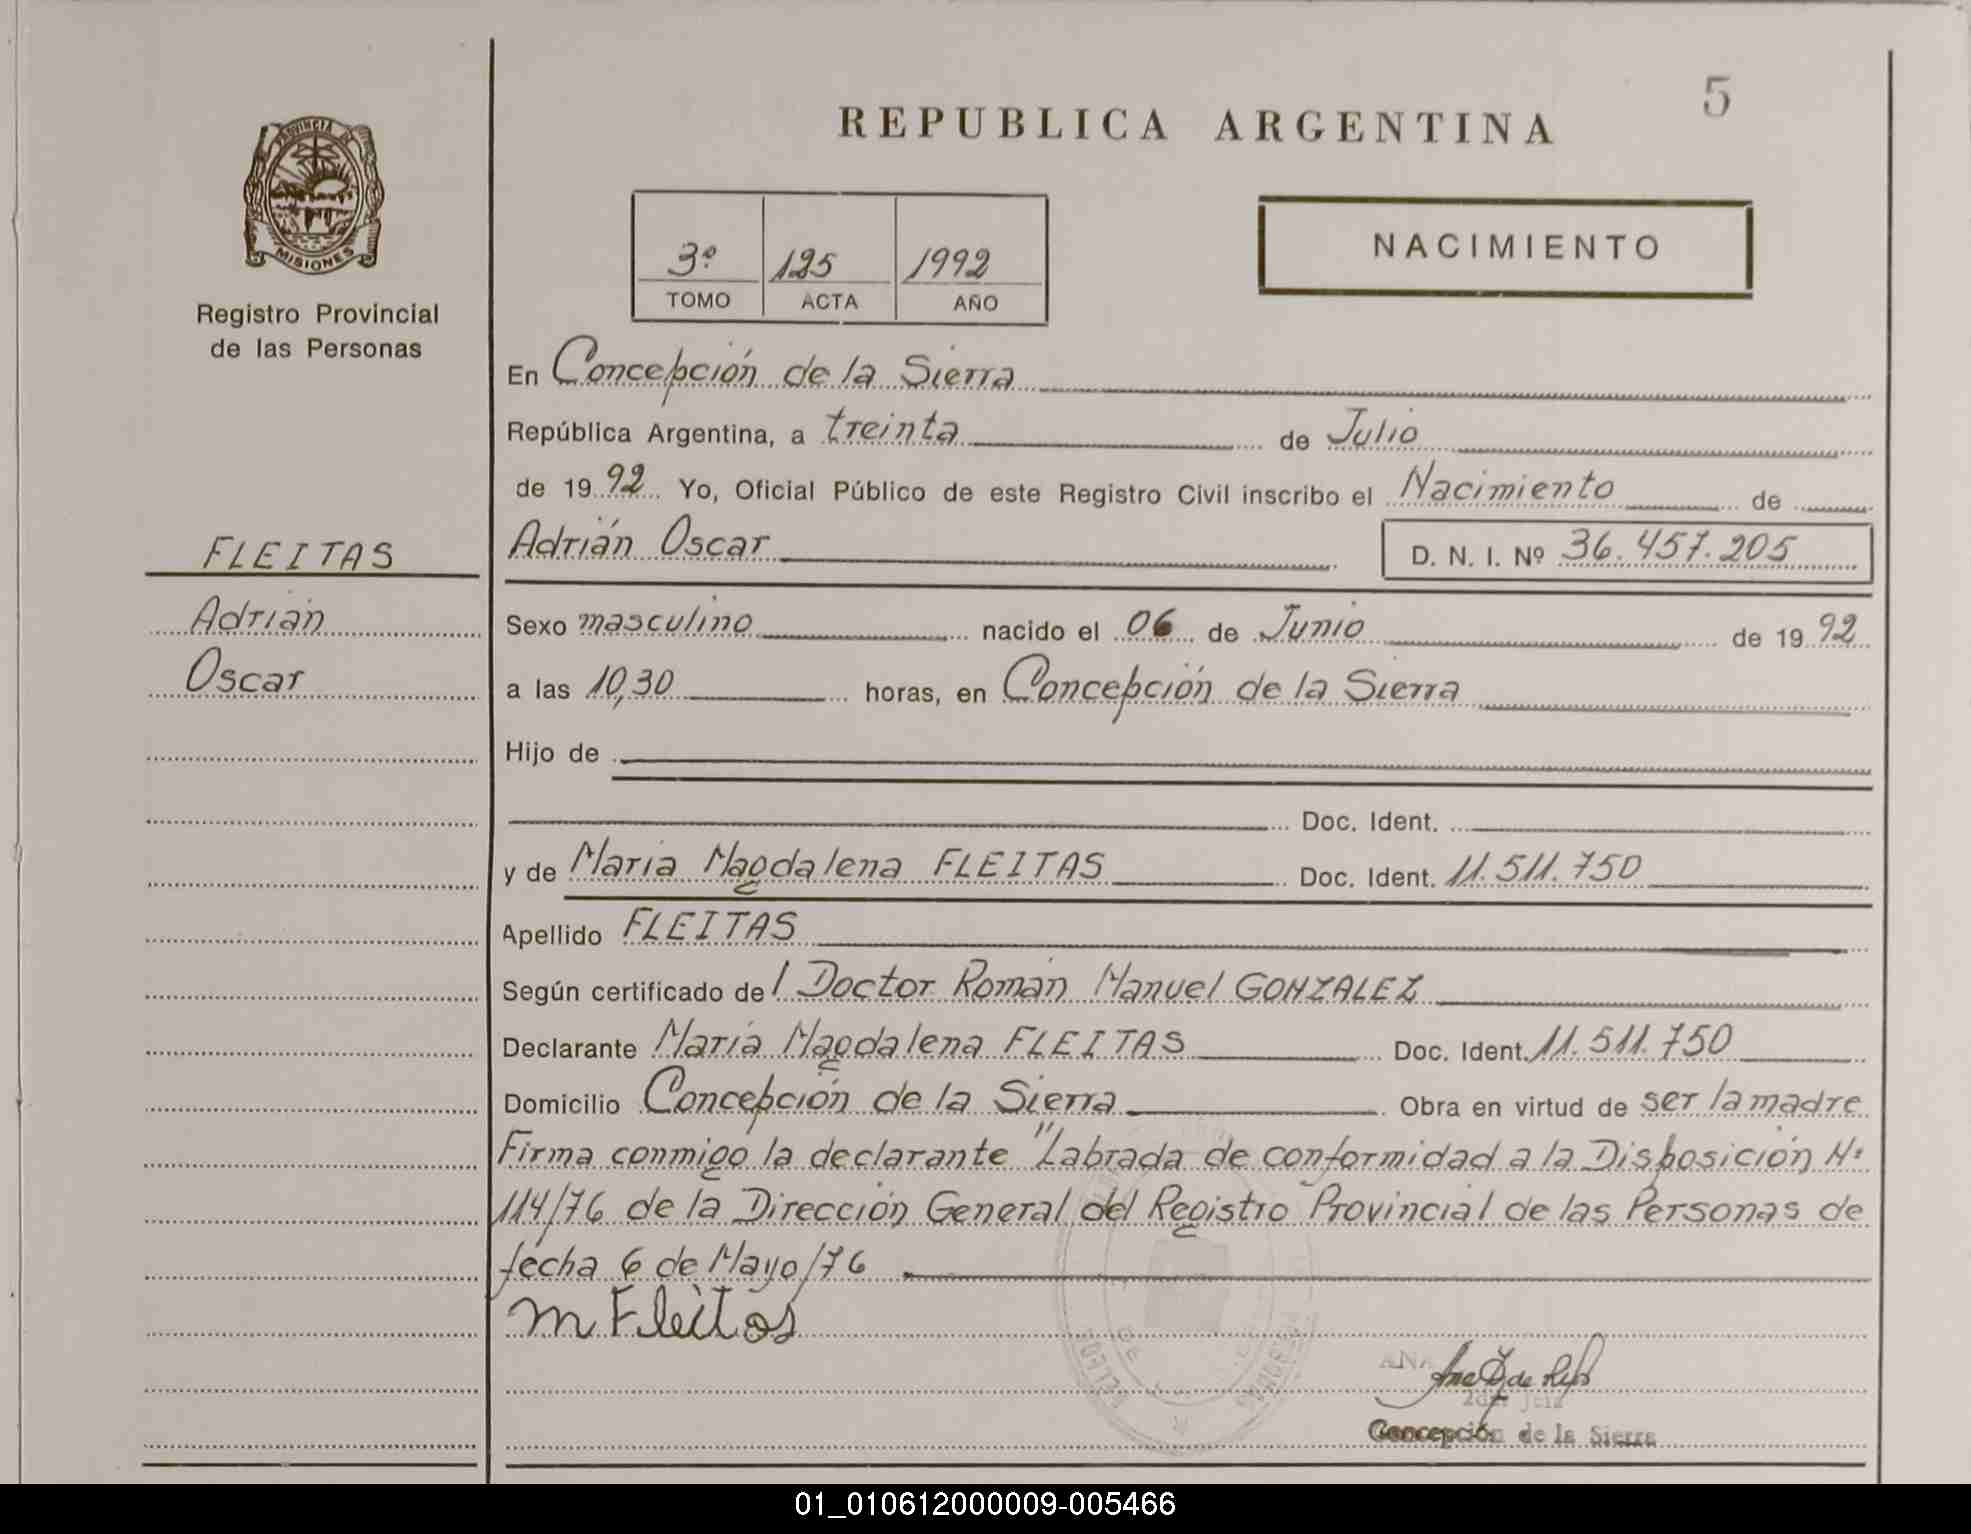 5
REPUBLICA ARGENTINA
PROVINCIA DE
MISIONES
Registro Provincial
de las Personas
3º 125 1992
TOMO ACTA AÑO
NACIMIENTO
En Concepción de la Sierra
República Argentina, a treinta de Julio
de 1992 Yo, Oficial Público de este Registro Civil inscribo el Nacimiento de
FLEITAS
Adrián Oscar D. N. I. Nº 36.457.205
Adrián
Oscar
Sexo masculino nacido el 06 de Junio de 1992
a las 10,30 horas, en Concepción de la Sierra
Hijo de
Doc. Ident.
y de María Magdalena FLEITAS Doc. Ident. 11.511.750
Apellido FLEITAS
Según certificado del Doctor Román Manuel GONZALEZ
Declarante María Magdalena FLEITAS Doc. Ident. 11.511.750
Domicilio Concepción de la Sierra Obra en virtud de ser la madre
Firma conmigo la declarante "Labrada de conformidad a la Disposición Nº
114/76 de la Dirección General del Registro Provincial de las Personas de
fecha 6 de Mayo/76
m Fleitos
ANA
Concepción de la Sierra
01_010612000009-005466